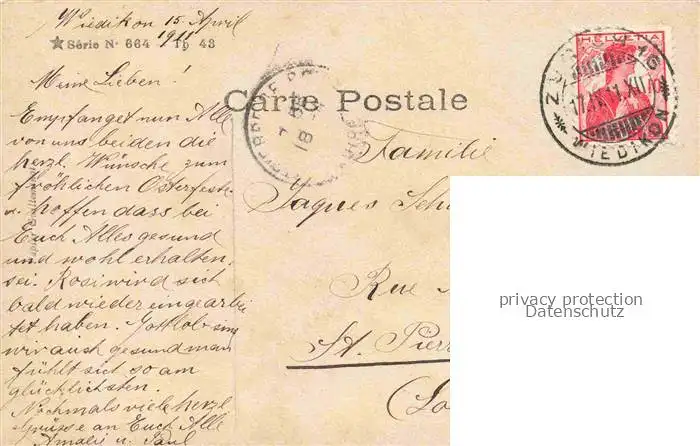 Wiedikon 15 April
1911
★ Série N° 664 / Tb 43
Meine Lieben!
Empfanget nun Alle
von uns beiden die
herzl. Wünsche zum
fröhlichen Osterfeste
u. hoffen dass bei
Euch Alles gesund
und wohl erhalten
sei. Rosi wird sich
bald wieder eingearbei
tet haben. Gottlob sind
wir auch gesund man
fühlt sich so am
glücklichsten.
Nochmals viele herzl
Grüsse an Euch Alle
Amalie u. Paul
Carte Postale
HELVETIA
WIEDIKON
18
Familie
Jaques Sch
Rue
St. Pierr
privacy protection
Datenschutz